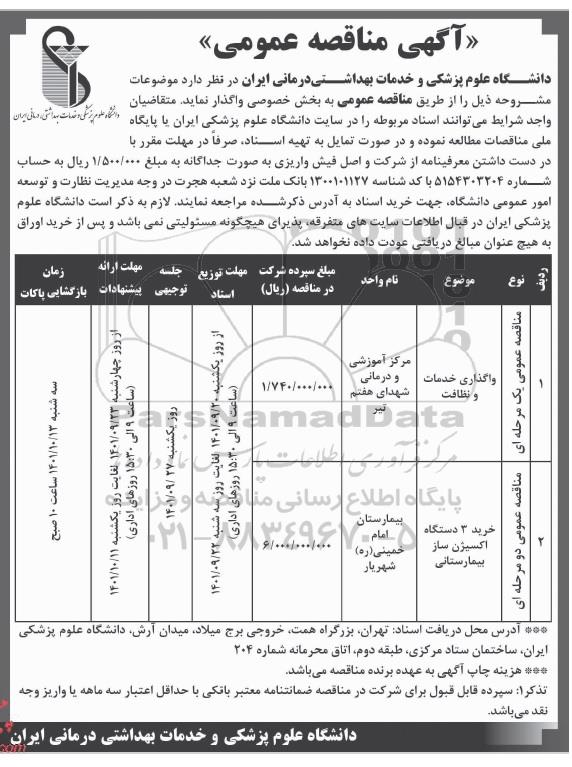 «آگهی مناقصه عمومی»
دانشگاه علوم پزشکی و خدمات بهداشتی، درمانی ایران
دانشــگاه علوم پزشکی و خدمات بهداشــتی‌درمانی ایران در نظر دارد موضوعات
مشــروحه ذیل را از طریق مناقصه عمومی به بخش خصوصی واگذار نماید. متقاضیان
واجد شرایط می‌توانند اسناد مربوطه را در سایت دانشگاه علوم پزشکی ایران یا پایگاه
ملی مناقصات مطالعه نموده و در صورت تمایل به تهیه اســناد، صرفاً در مهلت مقرر با
در دست داشتن معرفینامه از شرکت و اصل فیش واریزی به صورت جداگانه به مبلغ ۱/۵۰۰/۰۰۰ ریال به حساب
شــماره ۵۱۵۴۳۰۳۲۰۴ با کد شناسه ۱۳۰۰۱۰۱۱۲۷ بانک ملت نزد شعبه هجرت در وجه مدیریت نظارت و توسعه
امور عمومی دانشگاه، جهت خرید اسناد به آدرس ذکرشده مراجعه نمایند. لازم به ذکر است دانشگاه علوم
پزشکی ایران در قبال اطلاعات سایت های متفرقه، پذیرای هیچگونه مسئولیتی نمی باشد و پس از خرید اوراق
به هیچ عنوان مبالغ دریافتی عودت داده نخواهد شد.
ردیف
نوع
موضوع
نام واحد
مبلغ سپرده شرکت
در مناقصه (ریال)
مهلت توزیع
اسناد
جلسه
توجیهی
مهلت ارائه
پیشنهادات
زمان
بازگشایی پاکات
۱
مناقصه عمومی یک مرحله ای
واگذاری خدمات
و نظافت
مرکز آموزشی
و درمانی
شهدای هفتم
تیر
۱/۷۴۰/۰۰۰/۰۰۰
از روز یکشنبه ۱۴۰۱/۰۹/۲۰ لغایت روز سه شنبه ۱۴۰۱/۰۹/۲۲
(ساعت ۹ الی ۱۵:۳۰ روزهای اداری)
روز یکشنبه ۱۴۰۱/۰۹/۲۷
از روز چهارشنبه ۱۴۰۱/۰۹/۲۳ لغایت روز یکشنبه ۱۴۰۱/۱۰/۱۱
(ساعت ۹ الی ۱۵:۳۰ روزهای اداری)
سه شنبه ۱۴۰۱/۱۰/۱۳ ساعت ۱۰ صبح
۲
مناقصه عمومی دو مرحله ای
خرید ۳ دستگاه
اکسیژن ساز
بیمارستانی
بیمارستان
امام
خمینی(ره)
شهریار
۶/۰۰۰/۰۰۰/۰۰۰
ParsNamadData
مرکز فرآوری اطلاعات پارس نماد داده
پایگاه اطلاع رسانی مناقصه و مزایده
۰۲۱-۸۸۳۴۹۶۷۰-۵
*** آدرس محل دریافت اسناد: تهران، بزرگراه همت، خروجی برج میلاد، میدان آرش، دانشگاه علوم پزشکی
ایران، ساختمان ستاد مرکزی، طبقه دوم، اتاق محرمانه شماره ۲۰۴
*** هزینه چاپ آگهی به عهده برنده مناقصه می‌باشد.
تذکر۱: سپرده قابل قبول برای شرکت در مناقصه ضمانتنامه معتبر بانکی با حداقل اعتبار سه ماهه یا واریز وجه
نقد می‌باشد.
دانشگاه علوم پزشکی و خدمات بهداشتی درمانی ایران